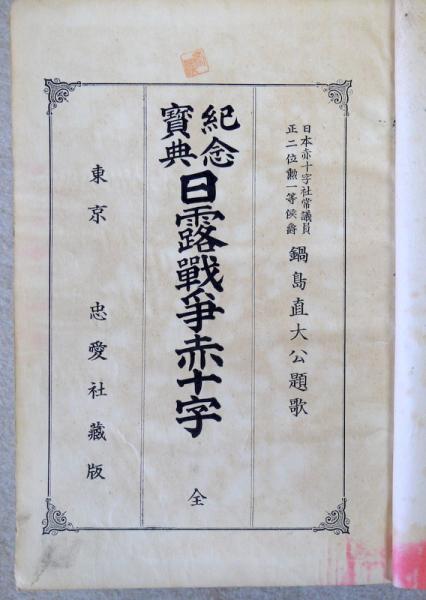 日本赤十字社常議員
正二位勲一等侯爵
鍋島直大公題歌
紀念
寶典
日露戰爭赤十字
全
東京 忠愛社藏版